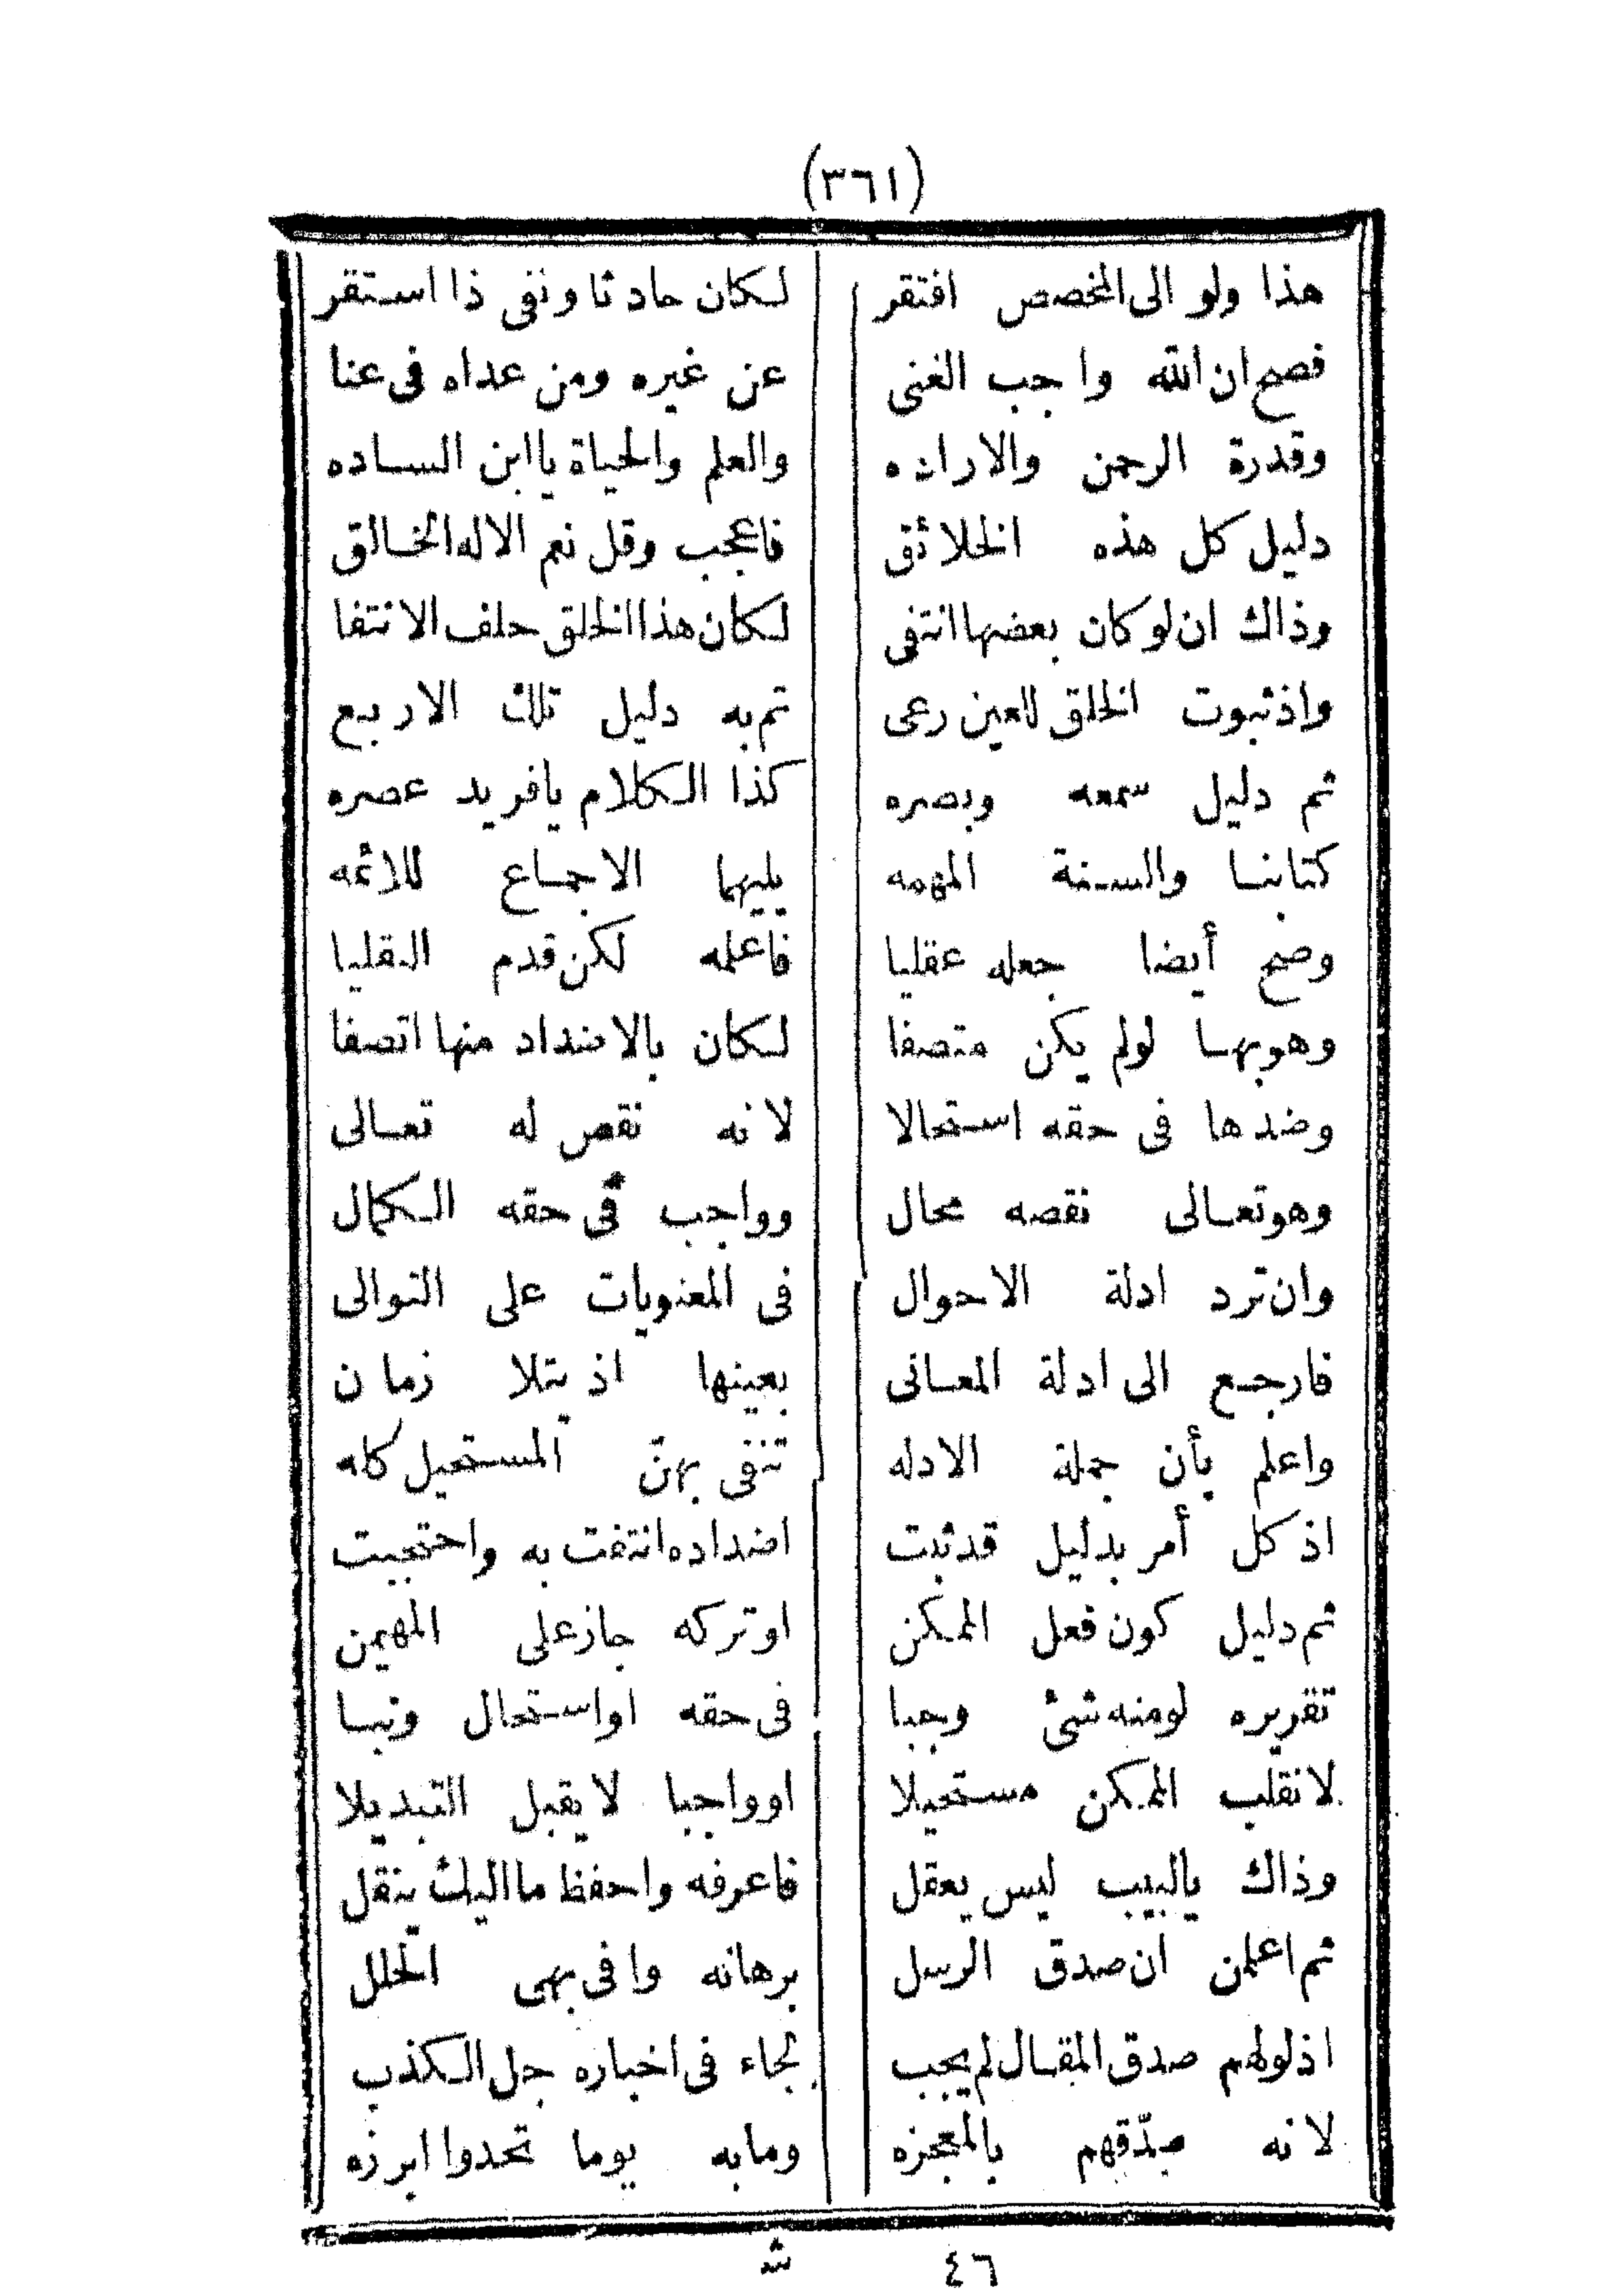 (٣٦١)
هذا ولو الى المخصص افتقر لكان حادثا ونفى ذا استقر
فصح ان الله واجب الغنى عن غيره ومن عداه فى عنا
وقدرة الرحمن والاراده والعلم والحياة يا ابن الساده
دليل كل هذه الخلائق فاعجب وقل نعم الاله الخالق
وذاك ان لو كان بعضها انتفى لكان هذا الخلق حلف الانتفا
واذ ثبوت الخلق للعين رعى تم به دليل تلك الاربع
ثم دليل سمعه وبصره كذا الكلام يا فريد عصره
كتابنا والسنة المهمه يليهما الاجماع للائمه
وصح أيضا جعله عقليا فاعلمه لكن قدم النقليا
وهو بها لو لم يكن متصفا لكان بالاضداد منها اتصفا
وضدها فى حقه استحالا لانه نقص له تعالى
وهو تعالى نقصه محال وواجب فى حقه الكمال
وان ترد ادلة الاحوال فى المعنويات على التوالى
فارجع الى ادلة المعانى بعينها اذ بتلا زمان
واعلم بأن جملة الادله تنفى بهنّ المستحيل كله
اذ كل أمر بدليل قد ثبت اضداده انتفت به واحتجبت
ثم دليل كون فعل الممكن او تركه جاز على المهيمن
تقريره لو منه شئ وجبا فى حقه او استحال ونبا
لانقلب الممكن مستحيلا او واجبا لا يقبل التبديلا
وذاك يا لبيب ليس يعقل فاعرفه واحفظ ما اليك ينقل
ثم اعلمن ان صدق الرسل برهانه وافى بهى الحلل
اذ لو لهم صدق المقال لم يجب لجاء فى اخباره جل الكذب
لانه صدّقهم بالمعجزه وما به يوما تحدوا ابرزه
٤٦ ث